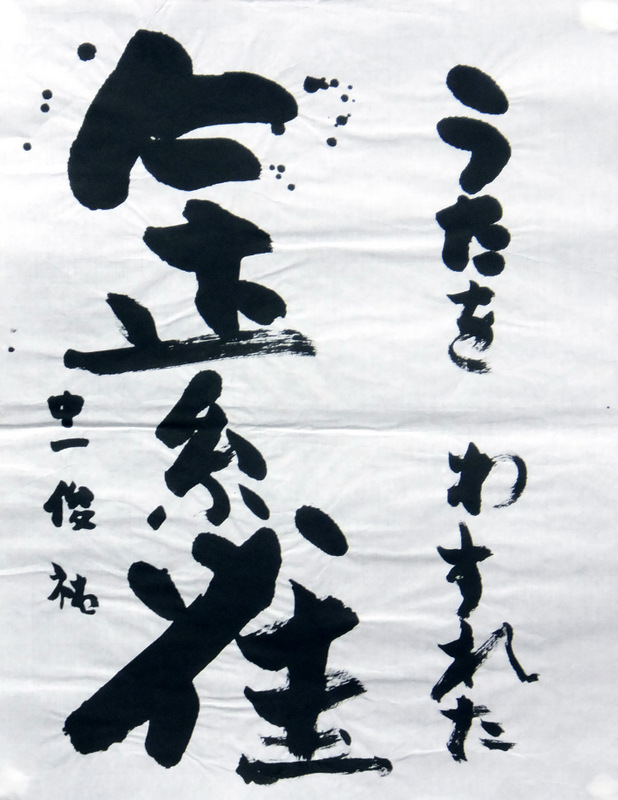 うたを わすれた
金糸雀
中一 俊祐